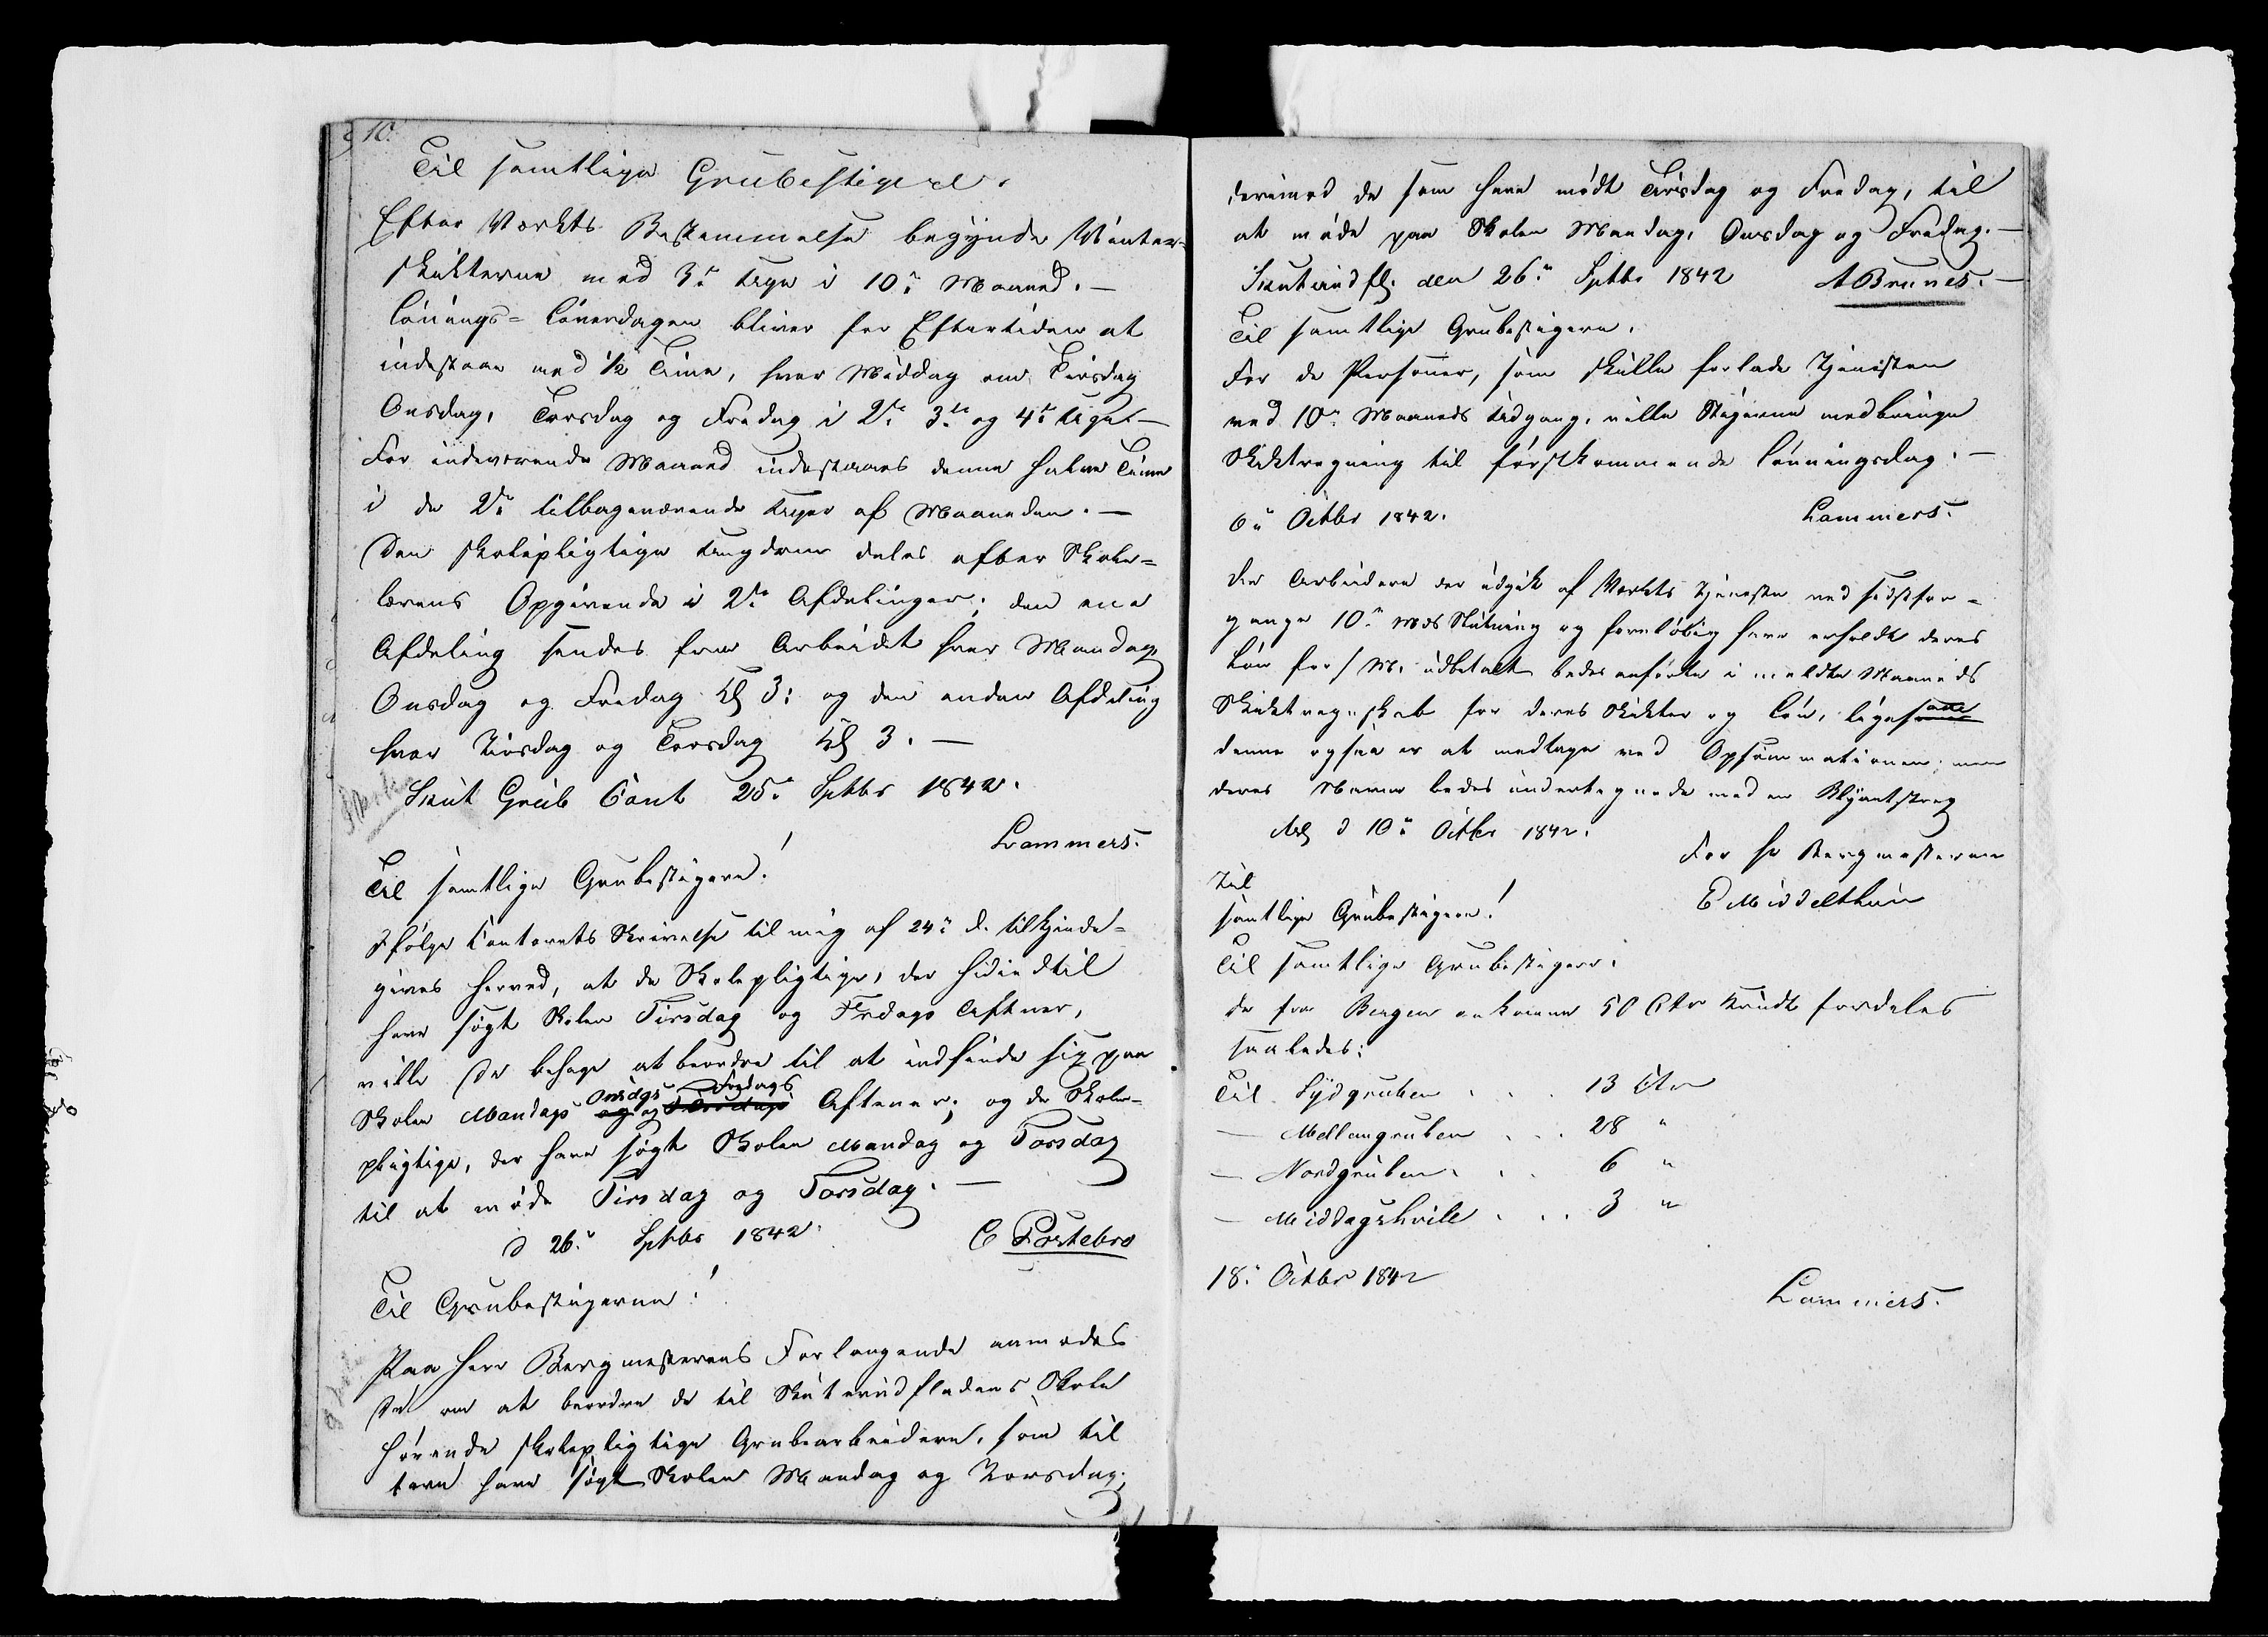 10.
Til samtlige Grubestigere.
Efter Værkets Bestemmelse begynde Vinter-
skikterne med 3de Uge i 10de Maaned. –
Lønings-Løverdagen bliver for Eftertiden at
indestaae med 1/2 Time, hver Middag om Tirsdag
Onsdag, Torsdag og Fredag i 2de 3de og 4de Uge. –
For indeværende Maaned indestaaes denne halve Time
i de 2de tilbageværende Uger af Maaneden. –
Den skolepligtige Ungdom deles efter Skole-
lærens Opgivende i 2de Afdelinger; den ene
Afdeling sendes fra Arbeidet hver Mandag
Onsdag og Fredag Kl 3: og den anden Afdeling
hver Tirsdag og Torsdag Kl 3. –
Skut Grub Cont 25de Septbr 1842.
Lammers.
Til samtlige Grubestigere!
Ifølge Contorets Skrivelse til mig af 24de d. tilkjende-
gives herved, at de Skolepligtige, der hidindtil
have søgt Skolen Tirsdag og Fredags Aftner,
ville De behage at beordre til at indfinde sig paa
Skolen Mandags Onsdags og Fredags Aftener; og de Skole-
pligtige, der have søgt Skolen Mandag og Torsdag
til at møde Tirsdag og Torsdag. –
d 26de Septbr 1842.
C Partebro
Til Grubestigerne!
Paa Herr Bergmesterens Forlangende anmodes
De om at beordre de til Skuterudfladens Skole
hørende skolepligtige Grubearbeidere, som til
have søgt Skolen Mandag og Torsdag;
derimod de som have mødt Tirsdag og Fredag, til
at møde paa Skolen Mandag, Onsdag og Fredag. –
Skuterudfl. den 26de Septbr 1842 A Brunes. –
Til samtlige Grubestigere.
For de Personer, som skulle forlade Tjenesten
ved 10de Maaneds Udgang, ville Stigerne medbringe
Skiktregning til førstkommende Lønningsdag. –
6te Octbr 1842. Lammers.
De Arbeidere der udgik af Værkets Tjeneste ved sidstfor-
gangne 10de Mds Slutning og foreløbig have erholdt deres
Løn for s M. udbetalt bedes anførte i meldte Maaneds
Skiktregnskab for deres Skikter og Løn, ligesom
denne ogsaa er at medtage ved Opsummationen; men
deres Navne bedes undertegnede med en Blyantstreg
d 10de Octbr 1842.
For Hr Bergmesteren
E Middelthun
Til
samtlige Grubestigere!
Til samtlige Grubestigere.
De fra Bergen ankomne 50 Ctr Krudt fordeles
saaledes:
Til Sydgruben . . . 13 Ctr
— Mellemgruben . . . 28 "
— Nordgruben . . . 6 "
— Middagshvile . . . 3 "
18de Octbr 1842
Lammers.